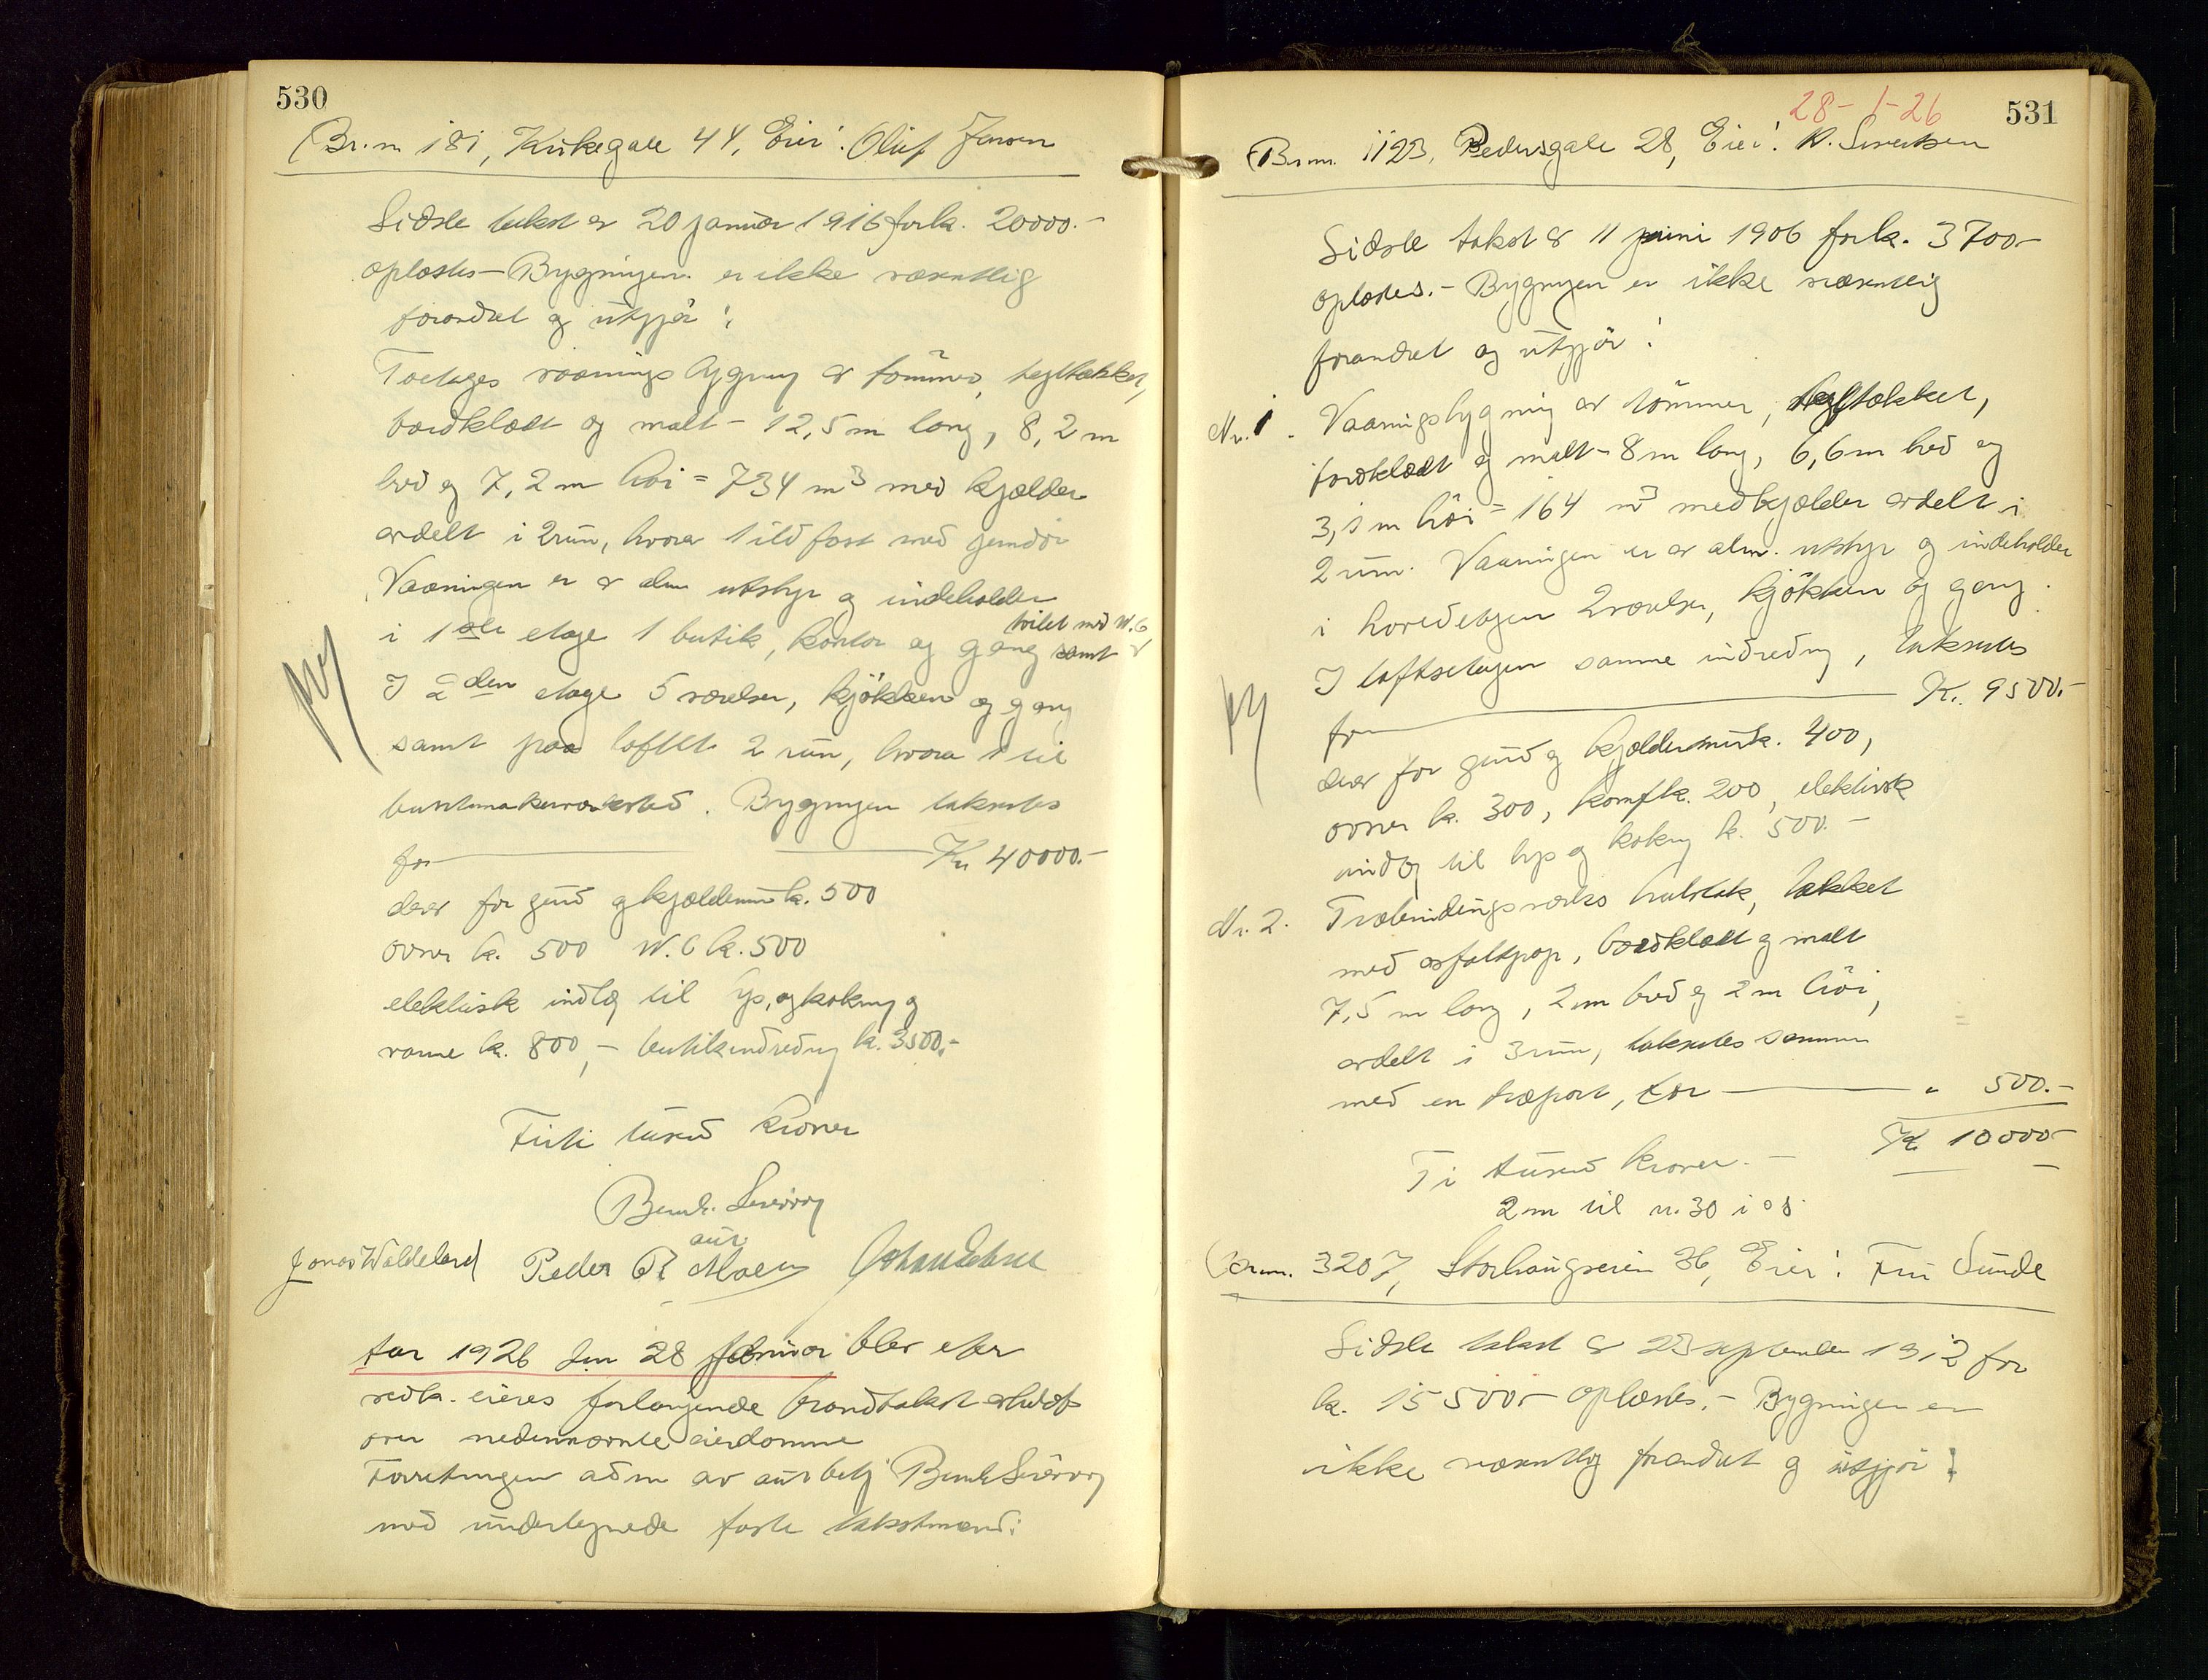 530
Br.nr 181, Kirkegate 44, Eier: Oluf Jansen
Sidste takst er 20 januar 1916 for k. 20000.-
oplæstes - Bygningen er ikke væsentlig
forandret og utgjør:
Toetages vaaningsbygning av tømmer, tegltækket,
bordklædt og malt - 12,5 m lang, 8,2 m
bred og 7,2 m høi = 734 m3 med kjælder
avdelt i 2 rum, hvorav 1 ildfast med jerndør
Vaaningen er av alm utstyr og indeholder
i 1ste etage 1 butik, kontor og gang samt
toilet med W.C.
I 2den etage 5 værelser, kjøkken og gang
samt paa loftet 2 rum, hvorav 1 til
buntmakerverksted. Bygningen takseres
for Kr 40000.-
derav for grund og kjældermur k. 500
ovner k. 500 W.C k. 500
elektrisk indlæg til lys, og kokning og
varme k. 800,- butikindredning k. 3500.-
Firti tusind kroner
Bernh. Severvog
aut.
Jonas Waldeland Peder R. Moen
Aar 1926 den 28 februar blev efter
vedk. eieres forlangende brandtakst avholdt
over nedennævnte eiendomme
Forretningen adm av aut betj Bernh Severvog
med undertegnede faste takstmænd:
28-1-26
531
Br.nr. 1123, Pedersgate 28, Eier: R. Sivertsen
Sidste takst er 11 juni 1906 for k. 3700-
oplæstes. - Bygningen er ikke væsentlig
forandret og utgjør:
Nr. 1. Vaaningsbygning av tømmer, tegltækket,
bordklædt og malt - 8 m lang, 6,6 m bred og
3,1 m høi = 164 m3 med kjælder avdelt i
2 rum. Vaaningen er av alm. utstyr og indeholder
i hovedetagen 2 værelser, kjøkken og gang.
I loftsetagen samme indredning, takseres
for Kr. 9500.-
derav for grund og kjældermur k. 400,
ovner k. 300, komf k. 200, elektrisk
indlæg til lys og kokning k. 500.-
Nr. 2. Træbindingsverks halvtak, tækket
med asfaltpap, bordklædt og malt
7,5 m lang, 2 m bred og 2 m høi,
avdelt i 3 rum, takseres sammen
med en træport, for " 500.-
Kr 10000-
Ti tusind kroner.-
2 m til nr. 30 i os.
Br.nr. 3207, Storhaugveien 36, Eier: Fru Sunde
Sidste takst er 23 september 1912 for
k. 15500- oplæstes. - Bygningen er
ikke væsentlig forandret og utgjør: